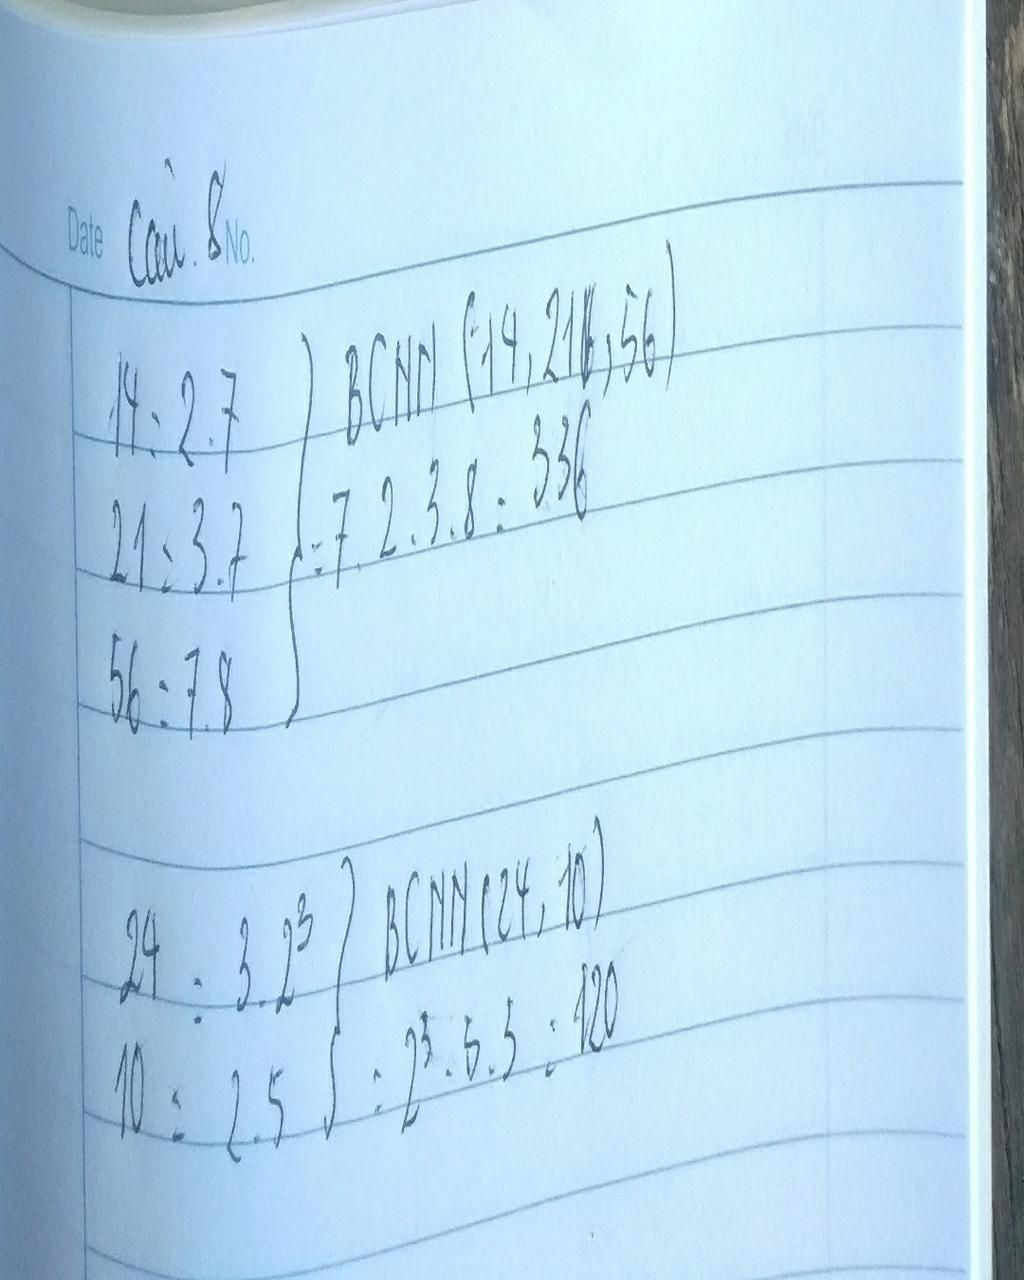 Date Câu 8 No.
14 = 2.7
21 = 3.7
56 = 7.8
BCNN (14, 21, 56)
= 7.2.3.8 = 336
24 = 3.2³
10 = 2.5
BCNN (24, 10)
= 2³.5.3 = 120